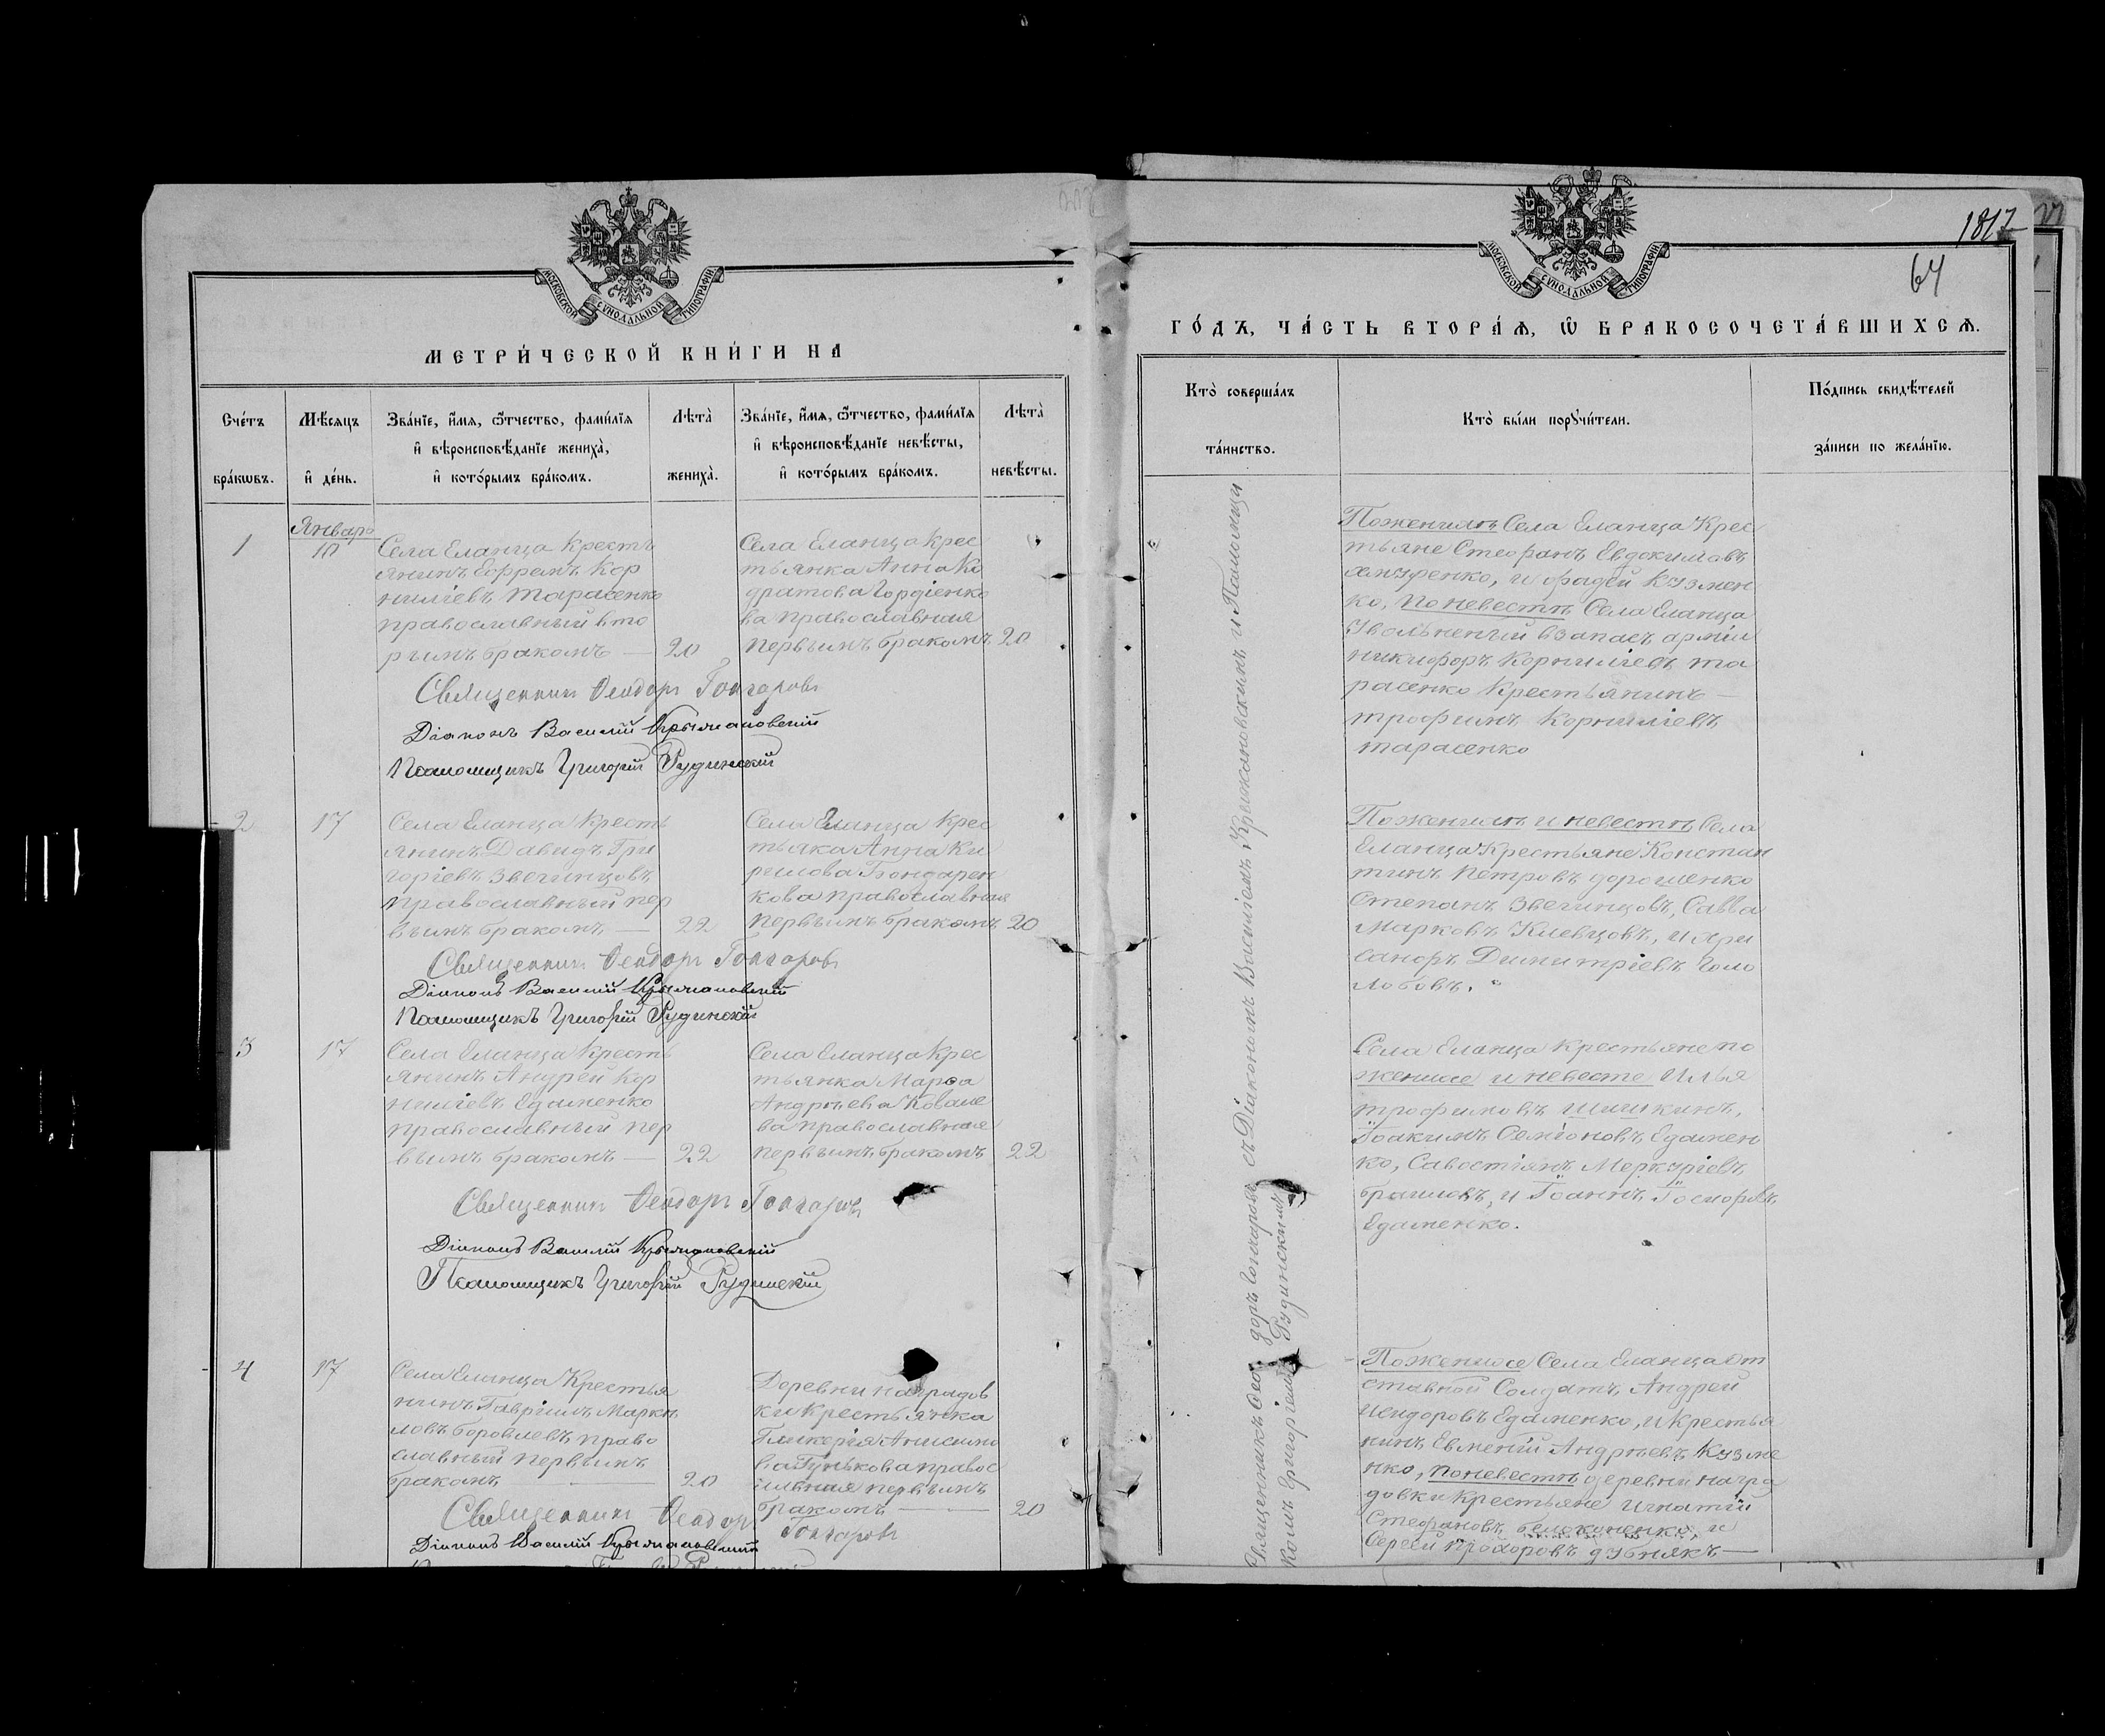 МОСКОВСКОЙ СѴНОДАЛЬНОЙ ТИПОГРАФІИ
МЕТРИ́ЧЕСКОЙ КНИ́ГИ НА
Сче́тъ бра́кѡвъ.
Мѣ́сяцъ и҆ де́нь.
Зва́нїе, и҆́мѧ, ѻ҆́тчество, фами́лїѧ и҆ вѣроисповѣ́данїе жениха̀, и҆ кото́рымъ бра́комъ.
Лѣта̀ жениха̀.
Зва́нїе, и҆́мѧ, ѻ҆́тчество, фами́лїѧ и҆ вѣроисповѣ́данїе невѣ́сты, и҆ кото́рымъ бра́комъ.
Лѣта̀ невѣ́сты.
1
Январь
10
Села Еланца Кресть
янинъ Ефремъ Кор
ниліевъ Тарасенко
православный вто
рымъ бракомъ — 20
Села Еланца Крес
тьянка Анна Ко
дратова Гордіенко
ва православная
первымъ бракомъ 20
Священникъ Ѳеодоръ Гончаровъ
Діаконъ Василій Крыжановскій
Псаломщикъ Григорій Рудинскій
2
17
Села Еланца Кресть
янинъ Давидъ Гри
горіевъ Звегинцовъ
православный пер
вымъ бракомъ — 22
Села Еланца Крес
тьяка Анна Ки
рилова Бондарен
кова православная
первымъ бракомъ 20
Священникъ Ѳеодоръ Гончаровъ
Діаконъ Василій Крыжановскій
Псаломщикъ Григорій Рудинскій
3
17
Села Еланца Кресть
янинъ Андрей Кор
ниліевъ Едаменко
православный пер
вымъ бракомъ — 22
Села Еланца Крес
тьянка Марѳа
Андрѣева Ковале
ва православная
первымъ бракомъ 22
Священникъ Ѳеодоръ Гончаровъ
Діаконъ Василій Крыжановскій
Псаломщикъ Григорій Рудинскій
4
17
Села Еланца Крестья
нинъ Гавріилъ
ловъ Боровлевъ право
славный первымъ
бракомъ — 20
Деревни Наградов
ки Крестьянка
Гликерія Анисимо
ва Гунькова правос
лавная первымъ
бракомъ — 20
Священникъ Ѳеодоръ
Гончаровъ
Діаконъ Василій Крыжановскій
МОСКОВСКОЙ СѴНОДАЛЬНОЙ ТИПОГРАФІИ
64
ГО́ДЪ, ЧА́СТЬ ВТОРА́Ѧ, Ѽ БРАКОСОЧЕТА́ВШИХСѦ.
Кто̀ соверша́лъ та́инство.
Кто̀ бы́ли порꙋчи́тели.
По́дпись свидѣ́телей за́писи по жела́нїю.
Священникъ Ѳеодоръ Гончаровъ съ Діакономъ Василіемъ Крыжановскимъ и Псаломщи
комъ Григоріемъ Рудинскимъ
По женихѣ Села Еланца Крес
тьяне Стефанъ Евдокимовъ
и Фадей Кузмен
ко, по невестѣ Села Еланца
Уволненый в запасъ арміи
Никифоръ Корниліевъ Та
расенко Крестьянинъ —
Трофимъ Корниліевъ
Тарасенко
По женихѣ и невестѣ Села
Еланца Крестьяне Констан
тинъ Петровъ Дорошенко
Степанъ Звегинцовъ, Савва
Марковъ Клевцовъ, и Хри
санфъ Димитріевъ Голо
лобовъ.
Села Еланца Крестьяне по
женихе и невесте Илья
Трофимовъ Шишкинъ,
Іоакимъ Семіоновъ Едамен
ко, Савостіянъ Меркуріевъ
и Іоаннъ Іосифовъ
Едаменко.
По женихе Села Еланца от
ставной Солдатъ Андрей
Исидоровъ Едаменко, и Крестья
нинъ Евменій Андрѣевъ Кузме
нко, по невестѣ деревни Награ
довки Крестьяне Игнатій
Стефановъ Белоконенко, и
Сергѣй Прохоровъ Дубнякъ —